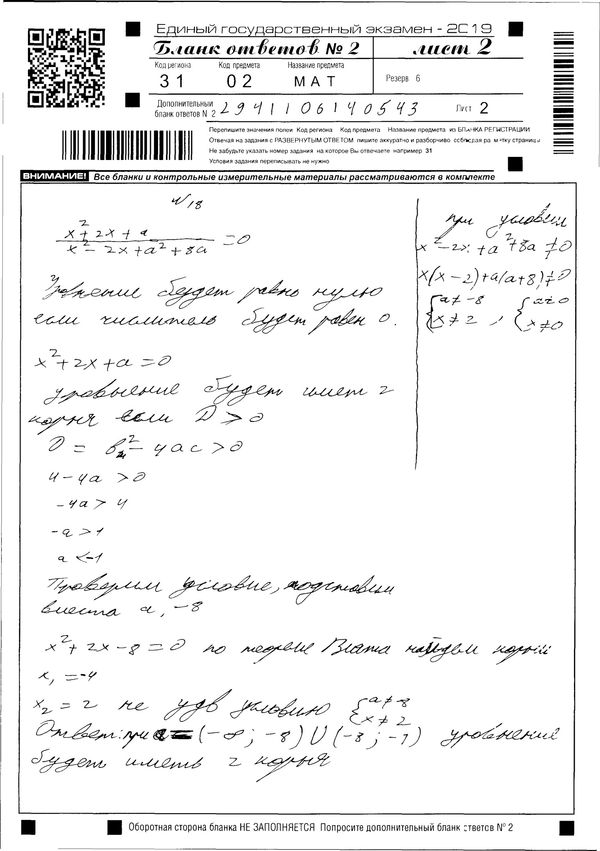 Единый государственный экзамен - 2019
Бланк ответов № 2 лист 2
Код региона Код предмета Название предмета
31 02 МАТ Резерв 6
Дополнительный бланк ответов № 2 2941106140543 Лист 2
Перепишите значения полей Код региона Код предмета Название предмета из БЛАНКА РЕГИСТРАЦИИ
Отвечая на задания с РАЗВЕРНУТЫМ ОТВЕТОМ пишите аккуратно и разборчиво соблюдая разметку страницы
Не забудьте указать номер задания на которое Вы отвечаете например 31
Условия задания переписывать не нужно
ВНИМАНИЕ! Все бланки и контрольные измерительные материалы рассматриваются в комплекте
№18
(x²+2x+a)/(x²-2x+a²+8a) =0
Уровнение будет равно нулю
если числитель будет равен 0.
x²+2x+a=0
уровнение будет имет 2
корня если D>0
D = b²-4ac>0
4-4a >0
-4a> 4
-a>1
a<-1
Проверим условие, подставим
вместа a, -8
x²+2x-8=0 по теореме Виета найдем корни
x₁ =-4
x₂ = 2 не удв условию {a≠-8
x≠2
Ответ: при a= (-∞; -8) U (-8; -1) уровнение
будет иметь 2 корня
при условии
x²-2x+a²+8a≠0
x(x-2)+a(a+8)≠0
{a≠-8 {a≠0
{x≠2 , {x≠0
Оборотная сторона бланка НЕ ЗАПОЛНЯЕТСЯ Попросите дополнительный бланк ответов № 2